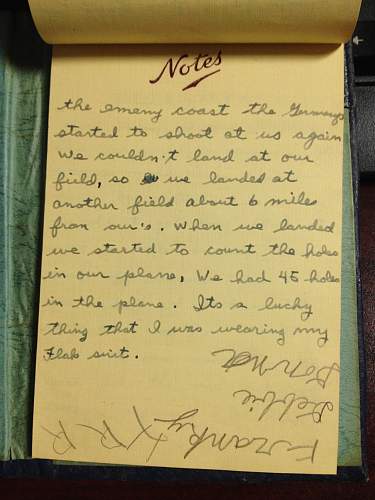 Notes
the ememy coast the Germanys
started to shoot at us again
We couldn't land at our
field, so we landed at
another field about 6 miles
from our's. When we landed
we started to count the holes
in our plane, We had 45 holes
in the plane. Its a lucky
thing that I was wearing my
Flak suit.
Donna
Debbie
Franky X R R